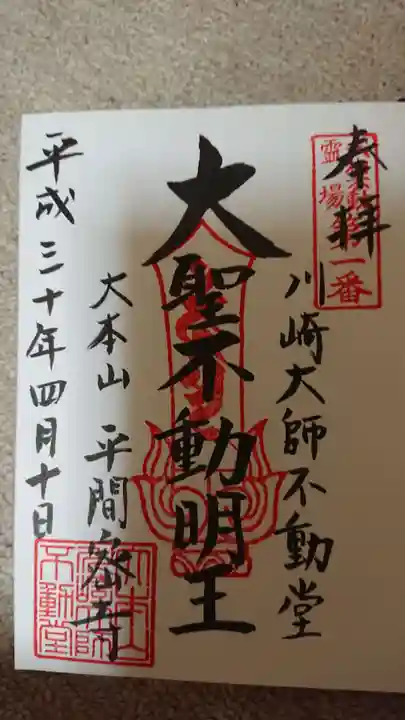 奉拝
川崎大師不動堂
大聖不動明王
大本山 平間寺
平成三十年四月十日
霊場第一番
不動堂